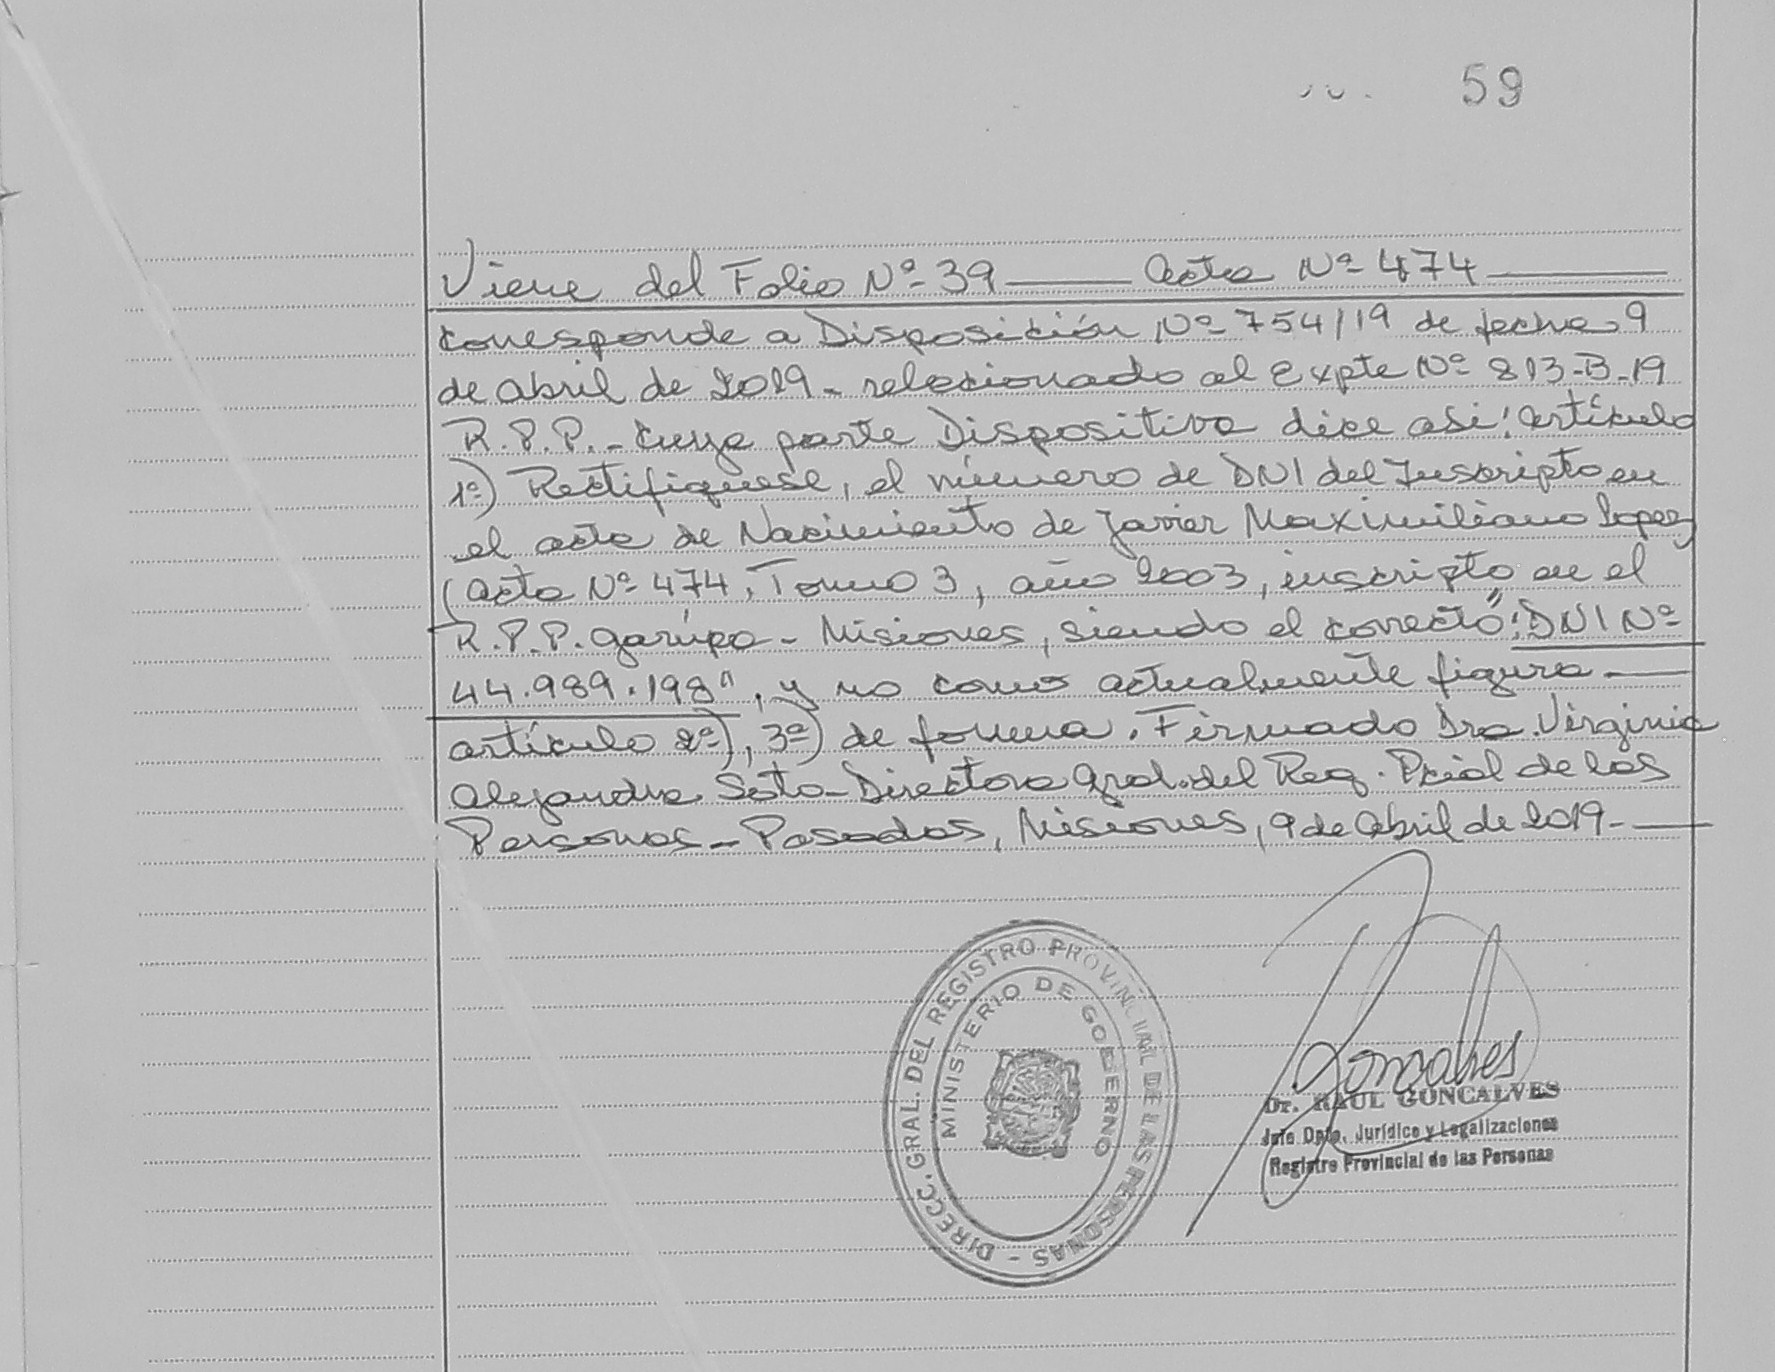 59
Viene del Folio Nº 39 ___ acta Nº 474 ___
corresponde a Disposición Nº 754/19 de fecha 9
de abril de 2019 - relacionado al Expte Nº 813-B-19
R.P.P. - cuya parte Dispositiva dice asi: artículo
1º) Rectifiquese, el número de DNI del Inscripto en
el acta de Nacimiento de Javier Maximiliano Lopez
(acta Nº 474, Tomo 3, año 2003, inscripto en el
R.P.P. Garupa - Misiones, siendo el correcto: "DNI Nº
44.989.198", y no como actualmente figura ___
artículo 2º), 3º) de forma. Firmado Dra. Virginia
Alejandra Soto - Directora Gral. del Reg. Pcial de las
Personas - Posadas, Misiones, 9 de abril de 2019 - ___
DIRECC. GRAL. DEL REGISTRO PROVINCIAL DE LAS PERSONAS -
MINISTERIO DE GOBIERNO
Goncalves
Dr. RAUL GONCALVES
Jefe Dpto. Jurídico y Legalizaciones
Registro Provincial de las Personas